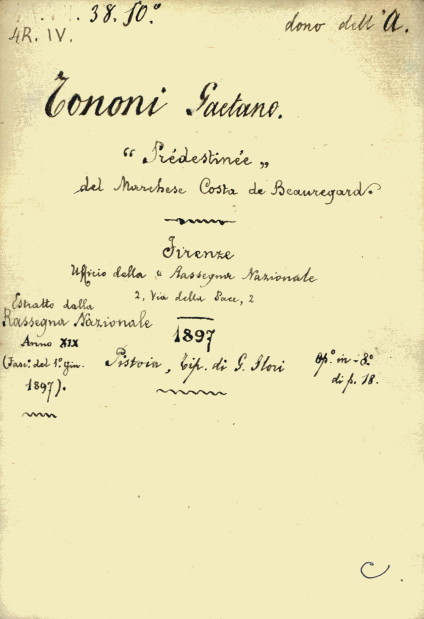 38. 10.º
4R. IV.
dono dell'A.
Tononi Gaetano.
“ Prédestinée „
del Marchese Costa de Beauregard.
Firenze
Ufficio della « Rassegna Nazionale
2, Via della Pace, 2
Estratto dalla
Rassegna Nazionale
Anno XIX
(Fasc.º del 1.º Giu.
1897).
1897
Pistoia, Tip. di G. Flori
Op.º in-8.º
di p. 18.
C